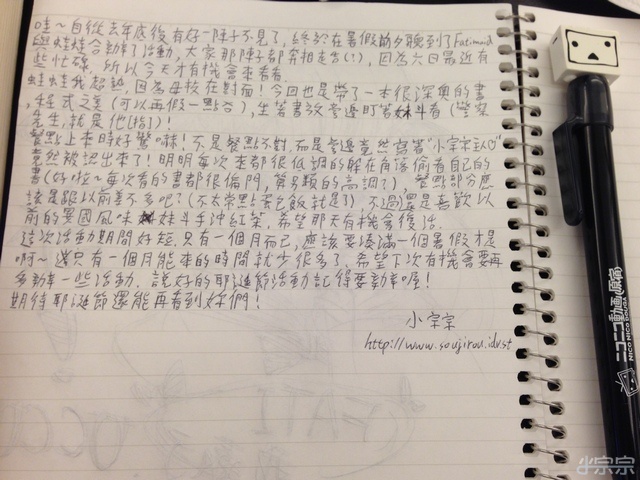 哇~自從去年底後有好一陣子不見了,終於在暑假前夕聽到了Fatimaid
與蛙蛙合辦了活動,大家那陣子都奔相走告(?),因為六日最近有
些忙碌,所以今天才有機會來看看。
蛙蛙我超熟,因為母校在對面!今回也是帶了一本很深奧的書
,程式之美(可以再假一點),坐著書放旁邊盯著妹斗看(警察
先生,就是他(指))!
餐點上來時好驚嚇!不是餐點不對,而是旁邊竟然寫著"小宗宗主人♡"
竟然被認出來了!明明每次來都很低調的躲在角落偷看自己的
書(好啦~每次看的書都很偏門,算另類的高調?),餐點部分應
該是跟以前差不多吧?(不太常點蛋包飯就是了),不過還是喜歡以
前的異國風味妹斗手沖紅茶,希望那天有機會復活。
這次活動期間好短,只有一個月而已,應該要湊滿一個暑假才是
啊~還只有一個月能來的時間就少很多了,希望下次有機會要再
多辦一些活動,說好的耶誕節活動記得要辦喔!
期待耶誕節還能再看到妳們!
小宗宗
http://www.soujirou.idv.st
ニコニコ動画(原宿)
NICO NICO DOUGA
小宗宗